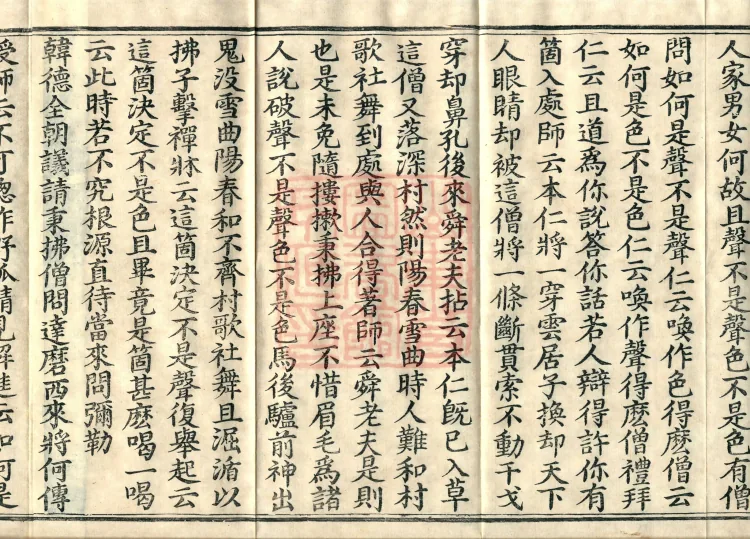 人家男女何故且聲不是聲色不是色有僧
問如何是聲不是聲仁云喚作色得麽僧云
如何是色不是色仁云喚作聲得麽僧禮拜
仁云且道爲你說答你話若人辯得許你有
箇入處師云本仁將一穿雲居子換却天下
人眼睛却被這僧將一條斷貫索不動干戈
穿却鼻孔後來舜老夫拈云本仁旣已入草
這僧又落深村然則陽春雪曲時人難和村
歌社舞到處與人合得著師云舜老夫是則
也是未免隨摟㯶秉拂上座不惜眉毛爲諸
人說破聲不是聲色不是色馬後驢前神出
鬼没雪曲陽春和不齊村歌社舞且淈𣸩以
拂子擊禪牀云這箇決定不是聲復舉起云
這箇決定不是色且畢竟是箇甚麽喝一喝
云此時若不究根源直待當來問彌勒
韓德全朝議請秉拂僧問達磨西來將何傳
受師云不可總作野狐精見解進云如何是